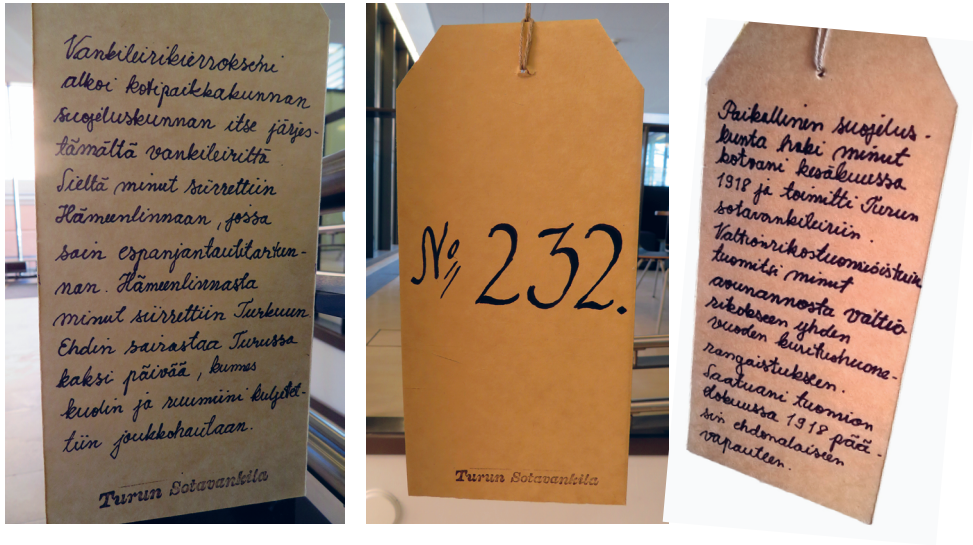 Vankileirikierrokseni
alkoi kotipaikkakunnan
suojeluskunnan itse järjes-
tämältä vankileiriltä
Sieltä minut siirrettiin
Hämeenlinnaan, jossa
sain espanjantautitartun-
nan. Hämeenlinnasta
minut siirrettiin Turkuun
Ehdin sairastaa Turussa
kaksi päivää, kunnes
kuolin ja ruumiini kuljetet-
tiin joukkohautaan.
Turun Sotavankila
No 232.
Turun Sotavankila
Paikallinen suojelus-
kunta haki minut
kotoani kesäkuussa
1918 ja toimitti Turun
sotavankileiriin.
Valtionrikostuomioistuin
tuomitsi minut
avunannosta valtio
rikokseen yhden
vuoden kuritushuone-
rangaistukseen.
Saatuani tuomion
elokuussa 1918 pää-
sin ehdonalaiseen
vapauteen.